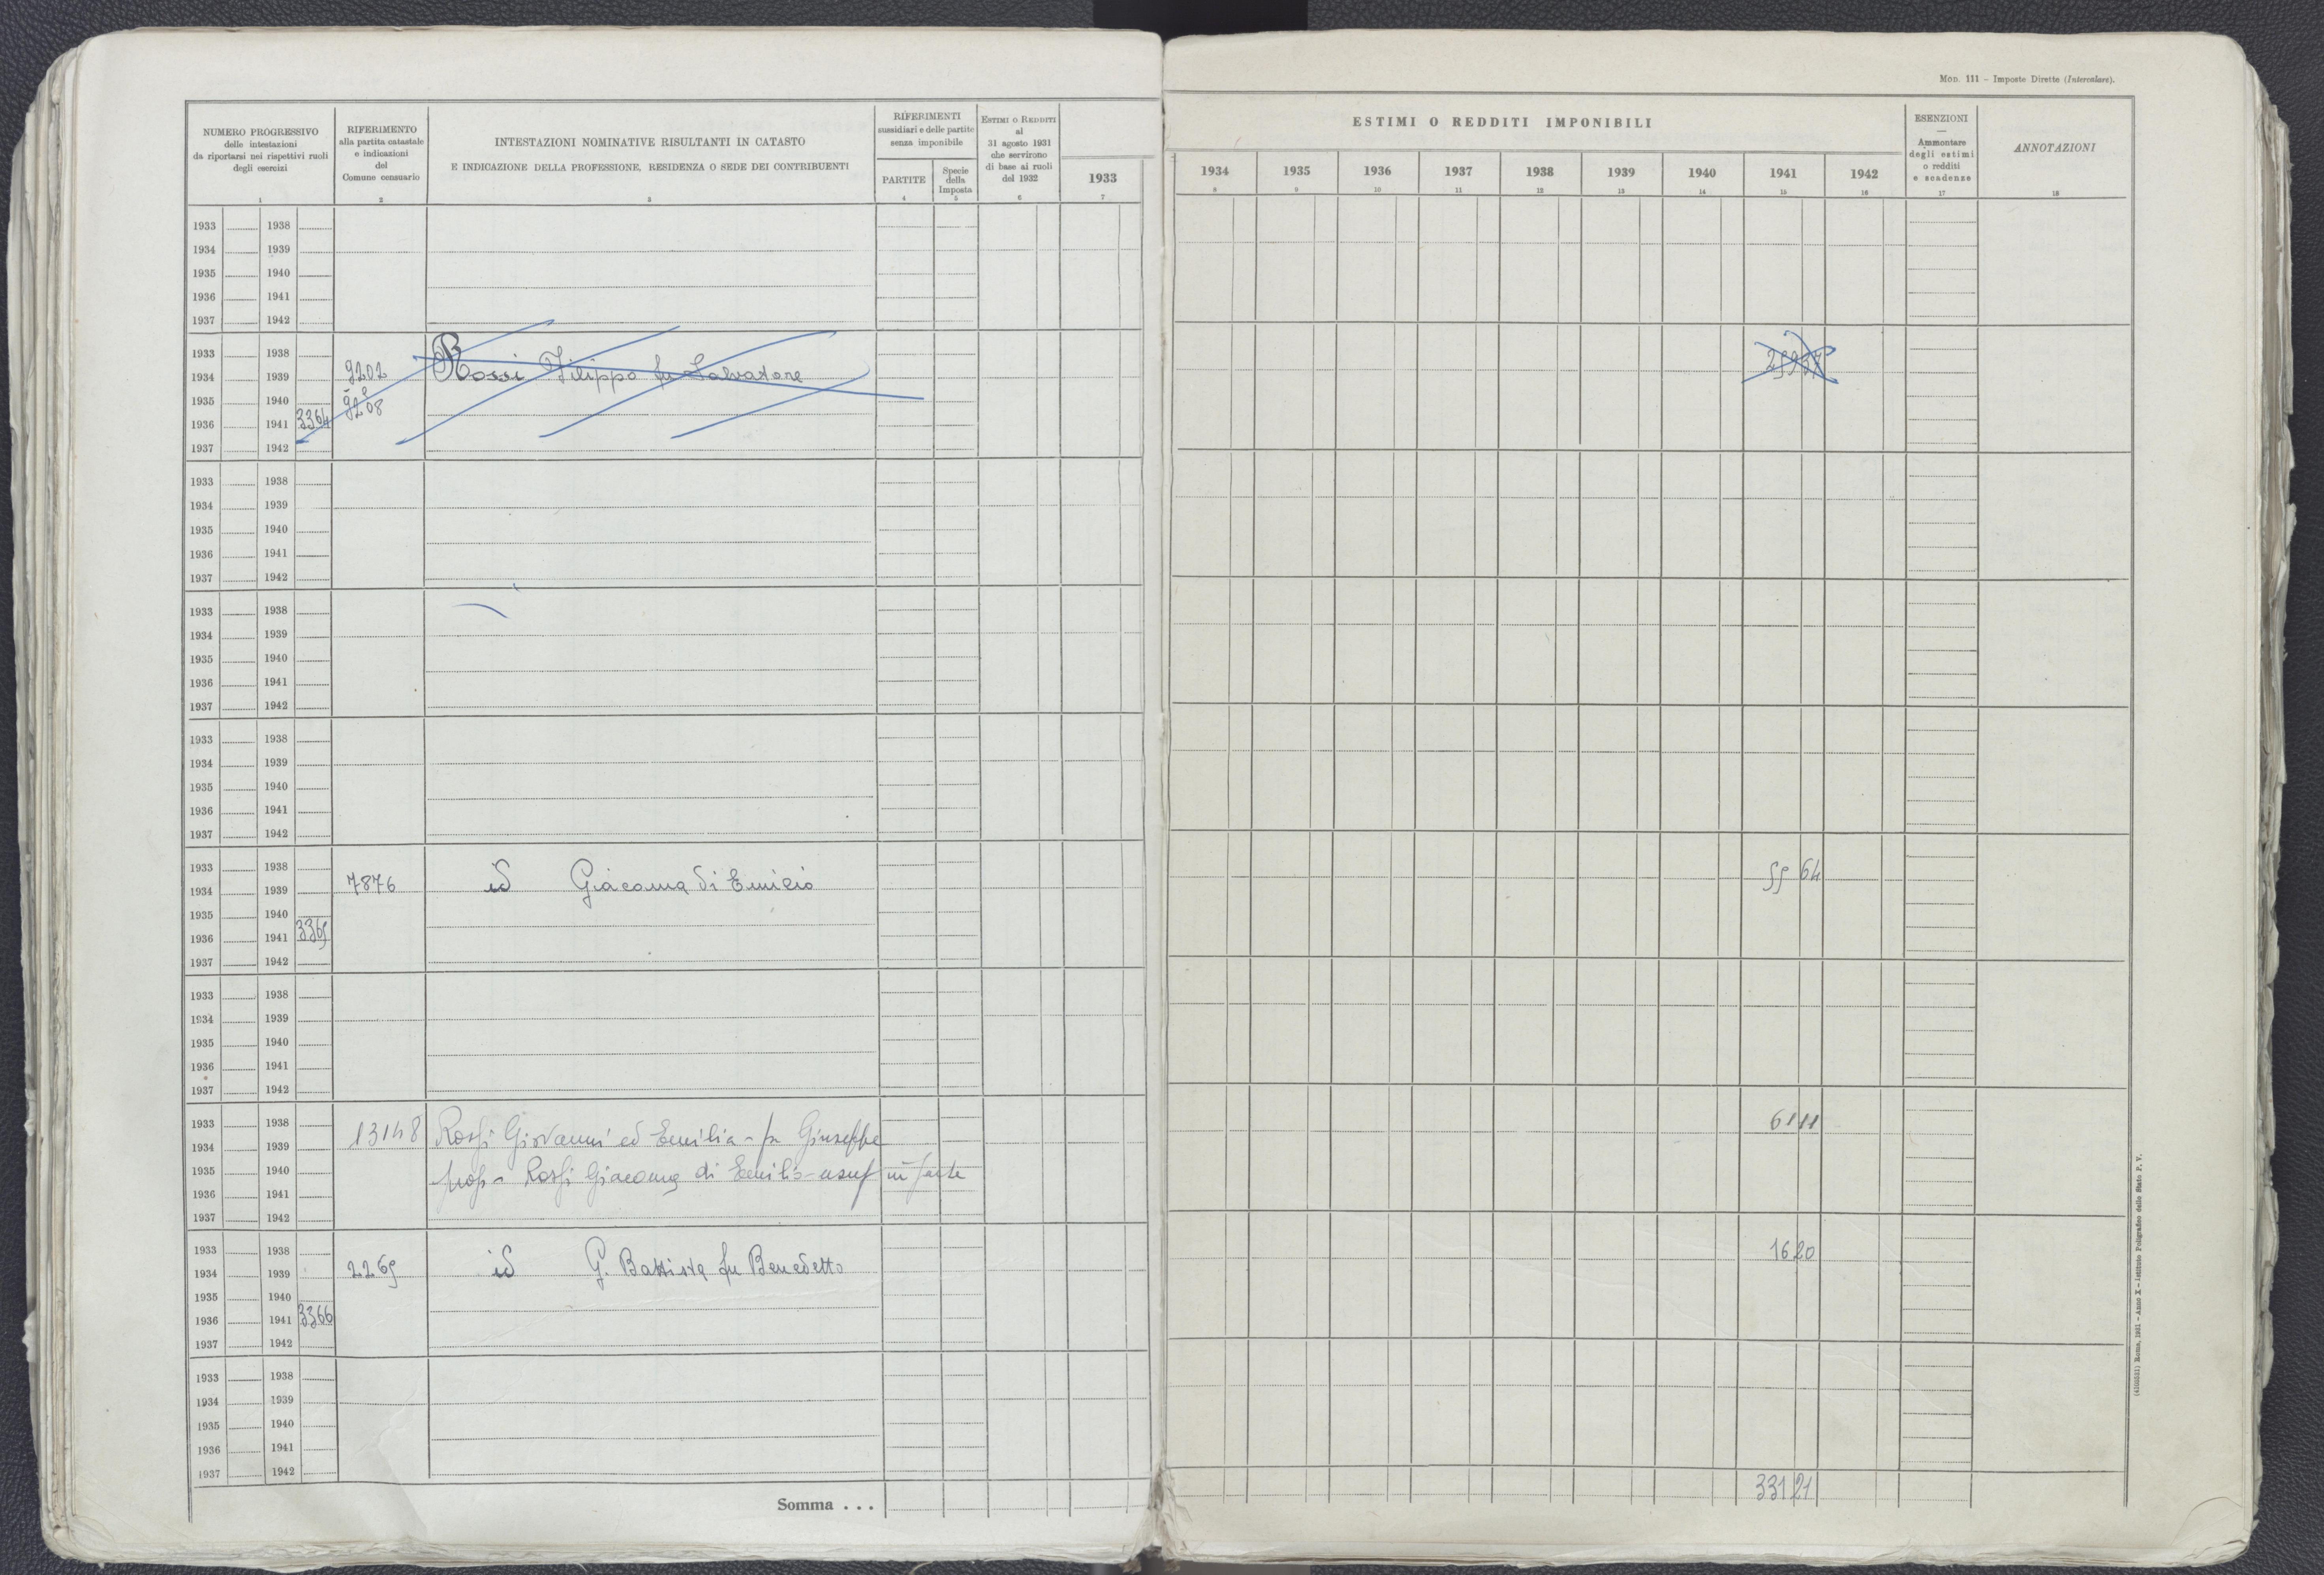 Mod. 111 – Imposte Dirette (Intercalare).
NUMERO PROGRESSIVO
delle intestazioni
da riportarsi nei rispettivi ruoli
degli esercizi
1
RIFERIMENTO
alla partita catastale
e indicazioni
del
Comune censuario
2
INTESTAZIONI NOMINATIVE RISULTANTI IN CATASTO
E INDICAZIONE DELLA PROFESSIONE, RESIDENZA O SEDE DEI CONTRIBUENTI
3
RIFERIMENTI
sussidiari e delle partite
senza imponibile
PARTITE
4
Specie
della
Imposta
5
ESTIMI O REDDITI
al
31 agosto 1931
che servirono
di base ai ruoli
del 1932
6
1933
7
ESTIMI O REDDITI IMPONIBILI
1934 1935 1936 1937 1938 1939 1940 1941 1942
8 9 10 11 12 13 14 15 16
ESENZIONI
—
Ammontare
degli estimi
o redditi
e scadenze
17
ANNOTAZIONI
18
1933 1938
1934 1939
1935 1940
1936 1941
1937 1942
1933 1938
1934 1939 9202 Rossi Filippo fu Salvatore
1935 1940 9208
1936 1941 3364
1937 1942
1933 1938
1934 1939
1935 1940
1936 1941
1937 1942
1933 1938
1934 1939
1935 1940
1936 1941
1937 1942
1933 1938
1934 1939
1935 1940
1936 1941
1937 1942
1933 1938
1934 1939 7876 id Giacoma di Emilio 55 64
1935 1940
1936 1941 3365
1937 1942
1933 1938
1934 1939
1935 1940
1936 1941
1937 1942
1933 1938 13148 Rossi Giovanni ed Emilia - fu Giuseppe 61 11
1934 1939
1935 1940 prop - Rossi Giacoma di Emilio - usuf in parte
1936 1941
1937 1942
1933 1938 16 20
1934 1939 2265 id G. Battista fu Benedetto
1935 1940
1936 1941 3366
1937 1942
1933 1938
1934 1939
1935 1940
1936 1941
1937 1942
Somma . . . 331 21
(4103531) Roma, 1931 – Anno X – Istituto Poligrafico dello Stato P. V.